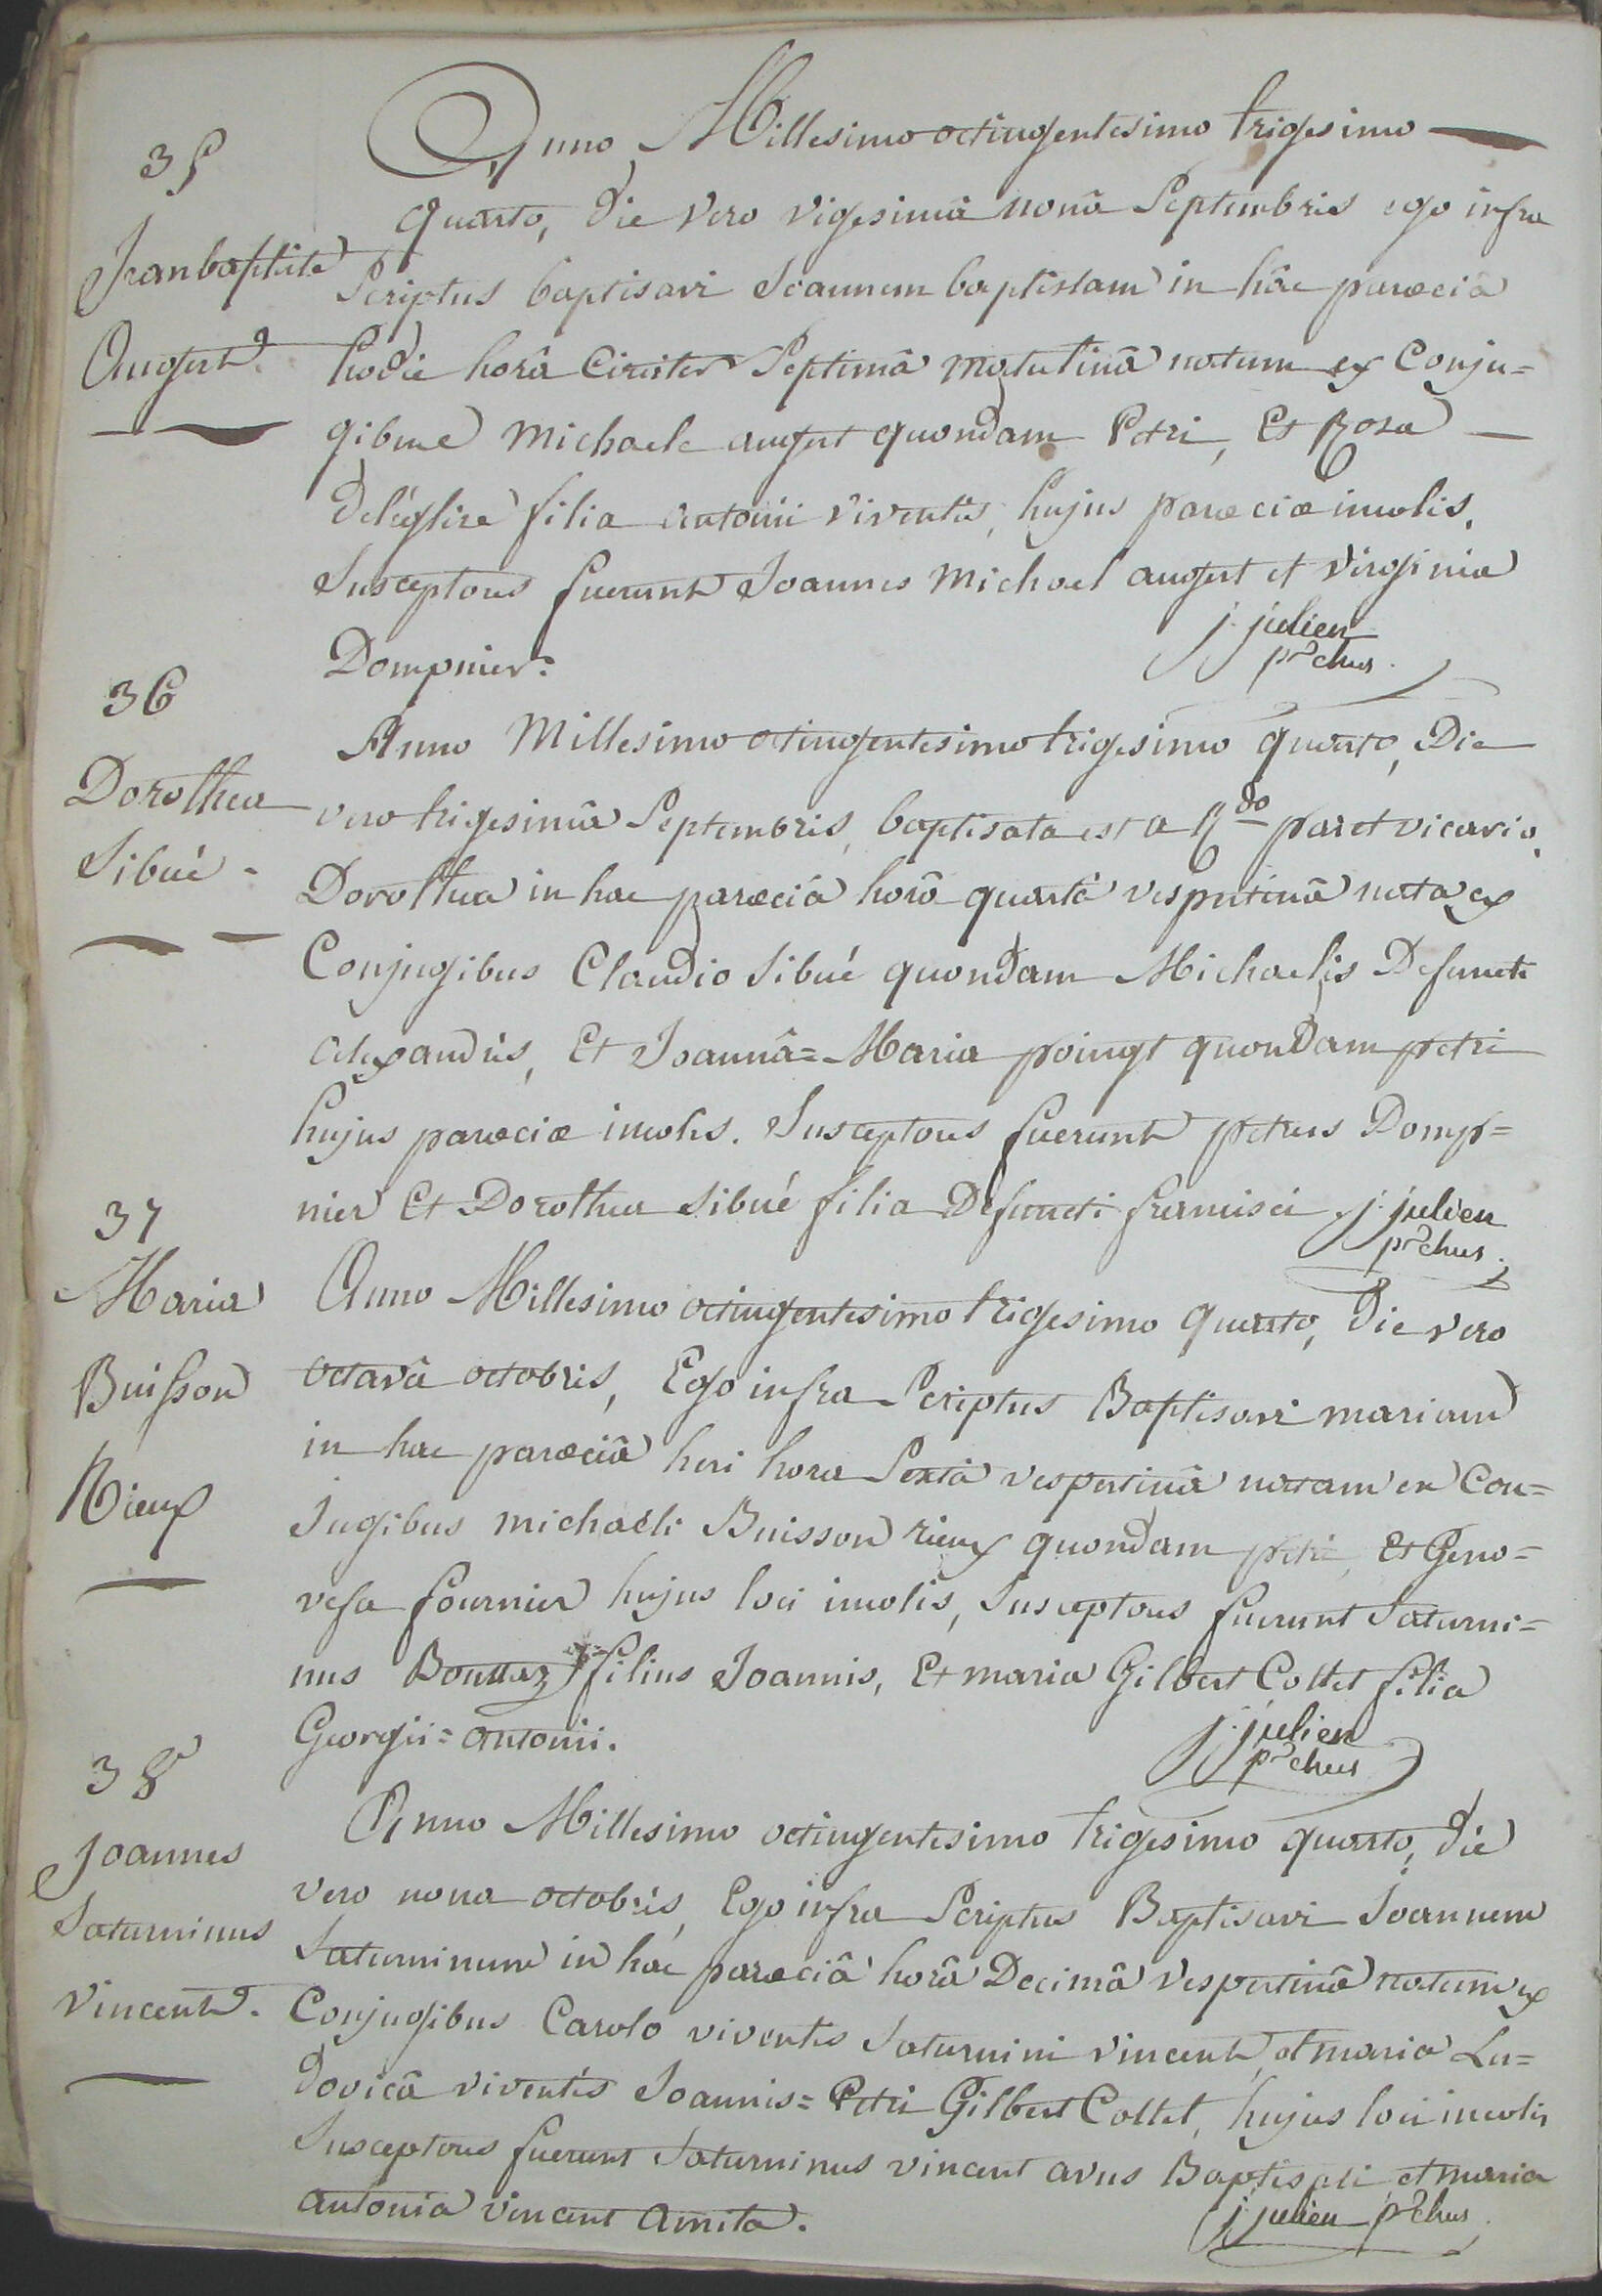 35
Jeanbaptiste
Augert.
Anno Millesimo octingentesimo trigesimo
quarto, die vero vigesimâ nonâ Septembris ego infra
Scriptus baptisavi Joannem baptistam in hâc parœciâ
hodie horâ Circiter Septimâ matutinâ natum ex Conju=
gibus Michaele augert quondam Petri, Et Rosa
Deléglise filia antonii viventis, hujus parœciæ incolis.
Susceptores fuerunt Joannes Michael augert et Virginia
Dompnier.
j. julien
prchus.
36
Dorothea
Sibué
Anno Millesimo octingentesimo trigesimo quarto, Die
vero trigesimâ Septembris, baptisata est a Rdo paret vicario.
Dorothea in hac parœciâ horâ quartâ vespertinâ nata ex
Conjugibus Claudio Sibué quondam Michaelis Defuncti
alexandris, Et Joannâ=Maria poingt quondam petri
hujus parœciæ incolis. Susceptores fuerunt petrus Domp=
nier Et Dorothea Sibué filia Defuncti francisci
j. julien
prchus.
37
Maria
Buisson
Rieux
Anno Millesimo octingentesimo trigesimo quarto, Die vero
octavâ octobris, Ego infra Scriptus Baptisavi mariam
in hac parœciâ heri hora Sextâ vespertinâ natam ex Con=
jugibus michaeli Buisson rieux quondam petri, Et Geno=
vefa fournier hujus loci incolis, Susceptores fuerunt Saturni=
nus Bouttaz filius Joannis, Et maria Gilbert Collet filia
Georgii=antonii.
j. julien
prchus
38
Joannes
Saturninus
Vincent.
Anno Millesimo octingentesimo trigesimo quarto, die
vero nona octobris, Ego infra Scriptus Baptisavi Joannem
Saturninum in hâc parœciâ horâ Decimâ vespertinâ natum ex
Conjugibus Carolo viventis Saturnini Vincent, et maria Lu=
dovicâ viventis Joannis=Petri Gilbert Collet, hujus loci incolis
Susceptores fuerunt Saturninus vincent avus Baptisati et maria
antonia vincent amita.
j. julien prchus.